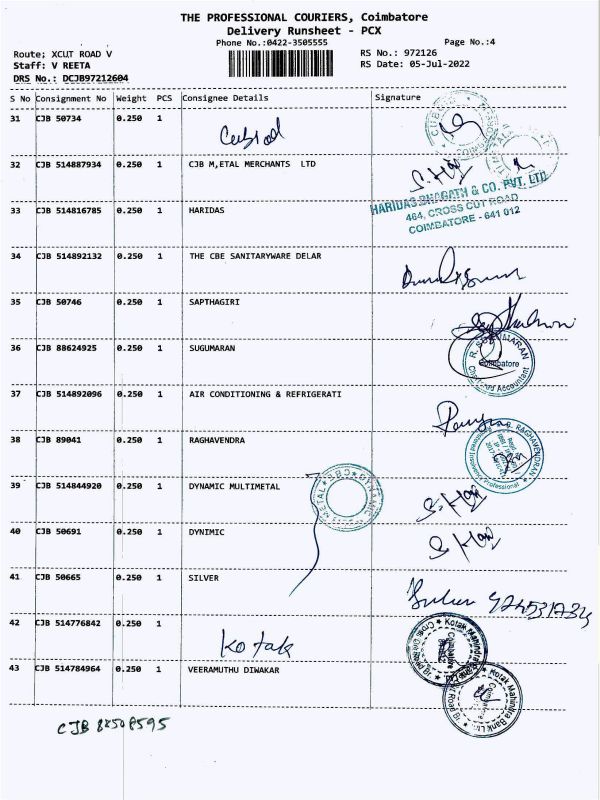 THE PROFESSIONAL COURIERS, Coimbatore
Delivery Runsheet - PCX
Phone No.:0422-3505555 Page No.:4
Route; XCUT ROAD V RS No.: 972126
Staff: V REETA RS Date: 05-Jul-2022
DRS No.: DCJB97212604
S No Consignment No Weight PCS Consignee Details Signature
31 CJB 50734 0.250 1
32 CJB 514887934 0.250 1 CJB M,ETAL MERCHANTS LTD
HARIDAS BHAGATH & CO. PVT. LTD
33 CJB 514816785 0.250 1 HARIDAS
464, CROSS CUT ROAD
COIMBATORE - 641 012
34 CJB 514892132 0.250 1 THE CBE SANITARYWARE DELAR
35 CJB 50746 0.250 1 SAPTHAGIRI
36 CJB 88624925 0.250 1 SUGUMARAN
Coimbatore
Chartered Accountant
37 CJB 514892096 0.250 1 AIR CONDITIONING & REFRIGERATI
38 CJB 89041 0.250 1 RAGHAVENDRA
RAGHAVENDRAN
39 CJB 514844920 0.250 1 DYNAMIC MULTIMETAL
40 CJB 50691 0.250 1 DYNIMIC
41 CJB 50665 0.250 1 SILVER
42 CJB 514776842 0.250 1 Kotak
43 CJB 514784964 0.250 1 VEERAMUTHU DIWAKAR
Kotak Mahindra Bank Ltd